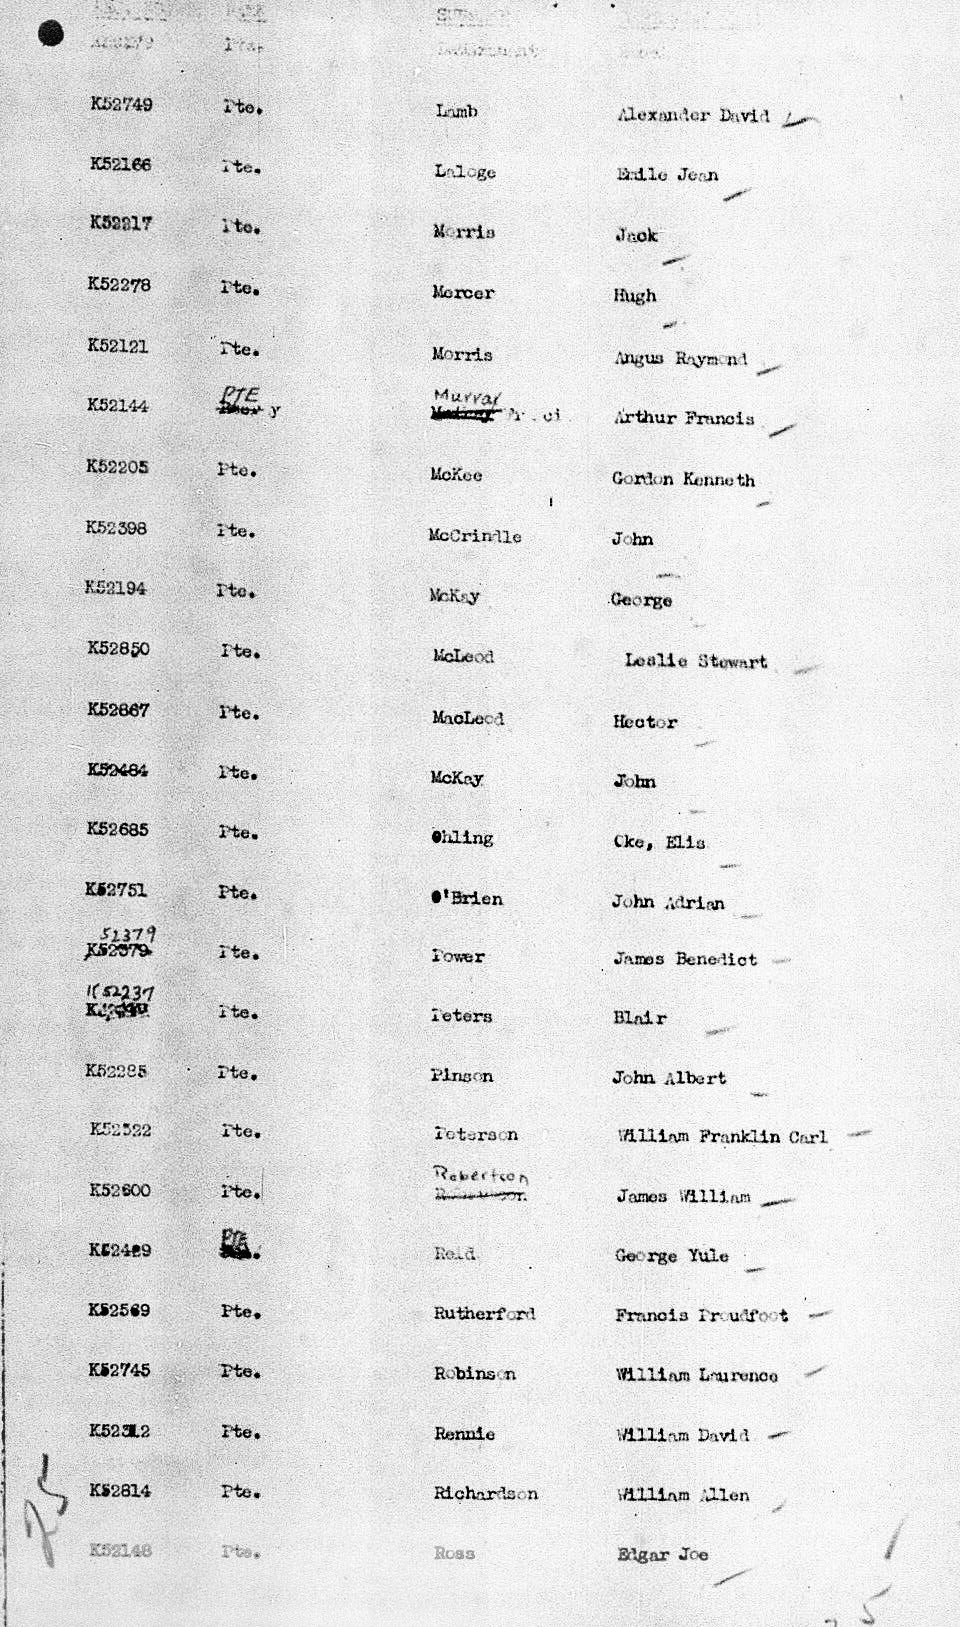 Pte.
K52749 Pte. Lamb Alexander David
K52166 Pte. Laloge Emile Jean
K52217 Pte. Morris Jack
K52278 Pte. Mercer Hugh
K52121 Pte. Morris Angus Raymond
PTE Murray
K52144 Arthur Francis
K52205 Pte. McKee Gordon Kenneth
K52398 Pte. McCrindle John
K52194 Pte. McKay George
K52850 Pte. McLeod Leslie Stewart
K52867 Pte. MacLeod Hector
K52484 Pte. McKay John
K52685 Pte. Ohling Oke, Elis
K52751 Pte. O'Brien John Adrian
52379
K52379 Pte. Power James Benedict
K52237
Pte. Peters Blair
K52285 Pte. Pinson John Albert
K52322 Pte. Peterson William Franklin Carl
Robertson
K52600 Pte. James William
PTE
K52489 Reid George Yule
K52569 Pte. Rutherford Francis Proudfoot
K52745 Pte. Robinson William Laurence
K52312 Pte. Rennie William David
K52814 Pte. Richardson William Allen
25
K52148 Pte. Ross Edgar Joe